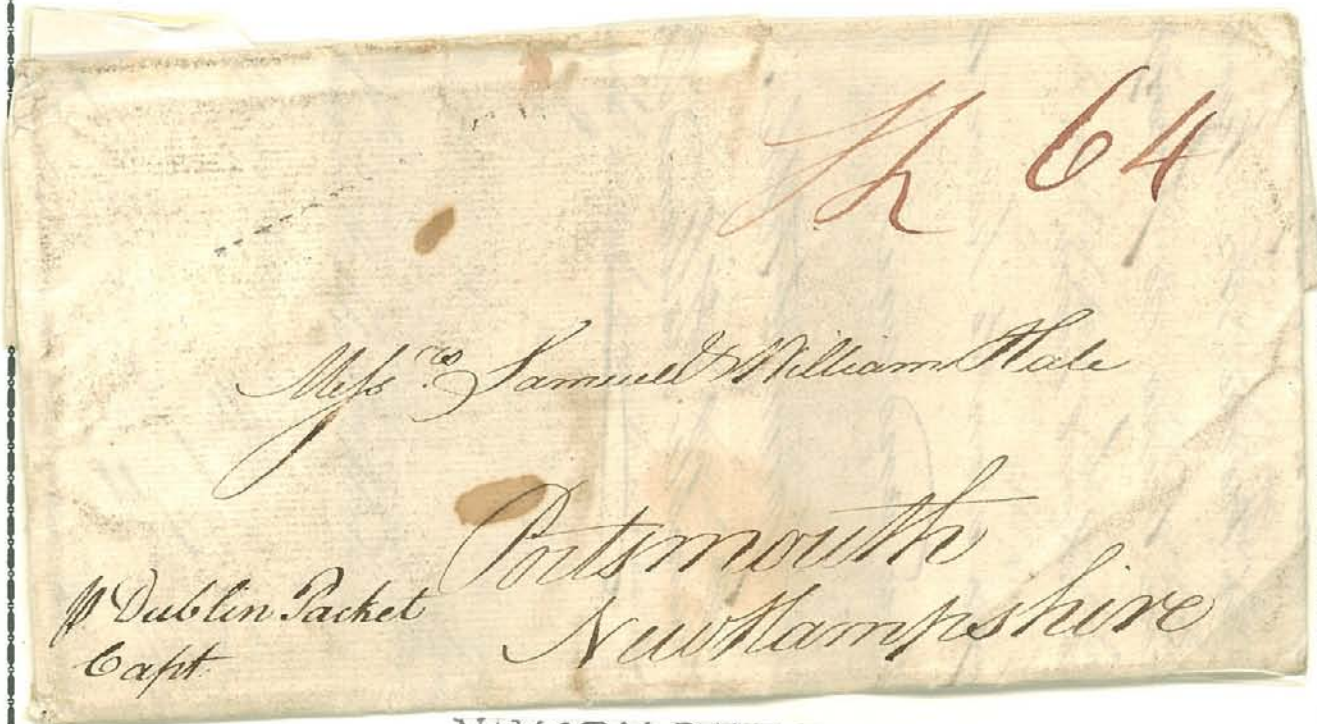 Sh 64
Messrs Samuel & William Hale
Portsmouth
New Hampshire
p Dublin Packet
Capt